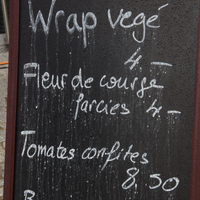 Wrap vegé
4.—
Fleur de courge
farcies 4.—
Tomates confites
8.50